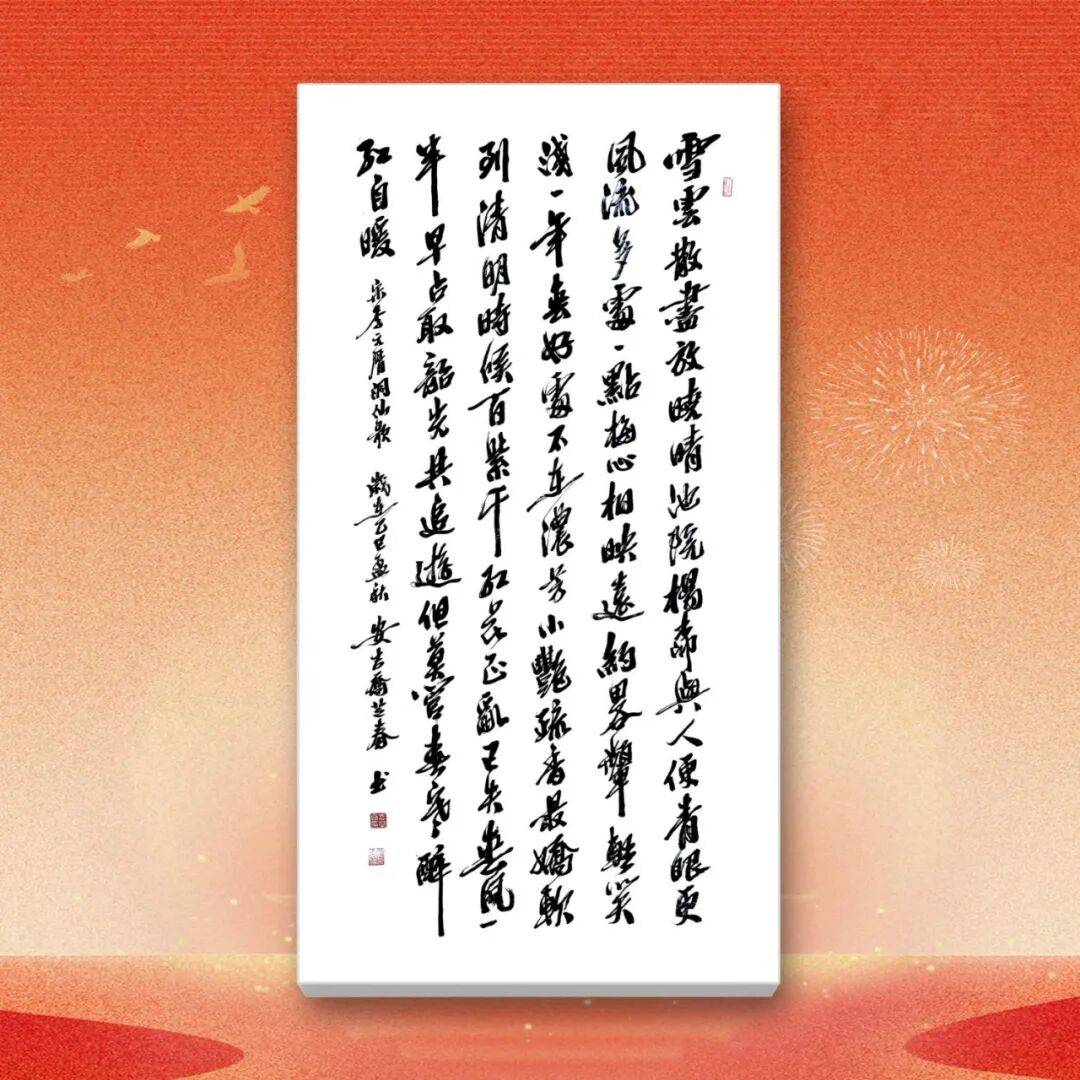 雪雲散盡放曉晴池院楊柳與人便青眼更
風流多處一點梅心相映遠約畧顰輕笑
淺一年春好處不在濃芳小艷疏香最嬌軟
到清明時候百紫千紅花正亂已失春風一
半早占取韶光共追遊但莫管春寒醉
紅自暖 宋李元膺洞仙歌 歲在乙巳孟秋 安吉齋芝春书